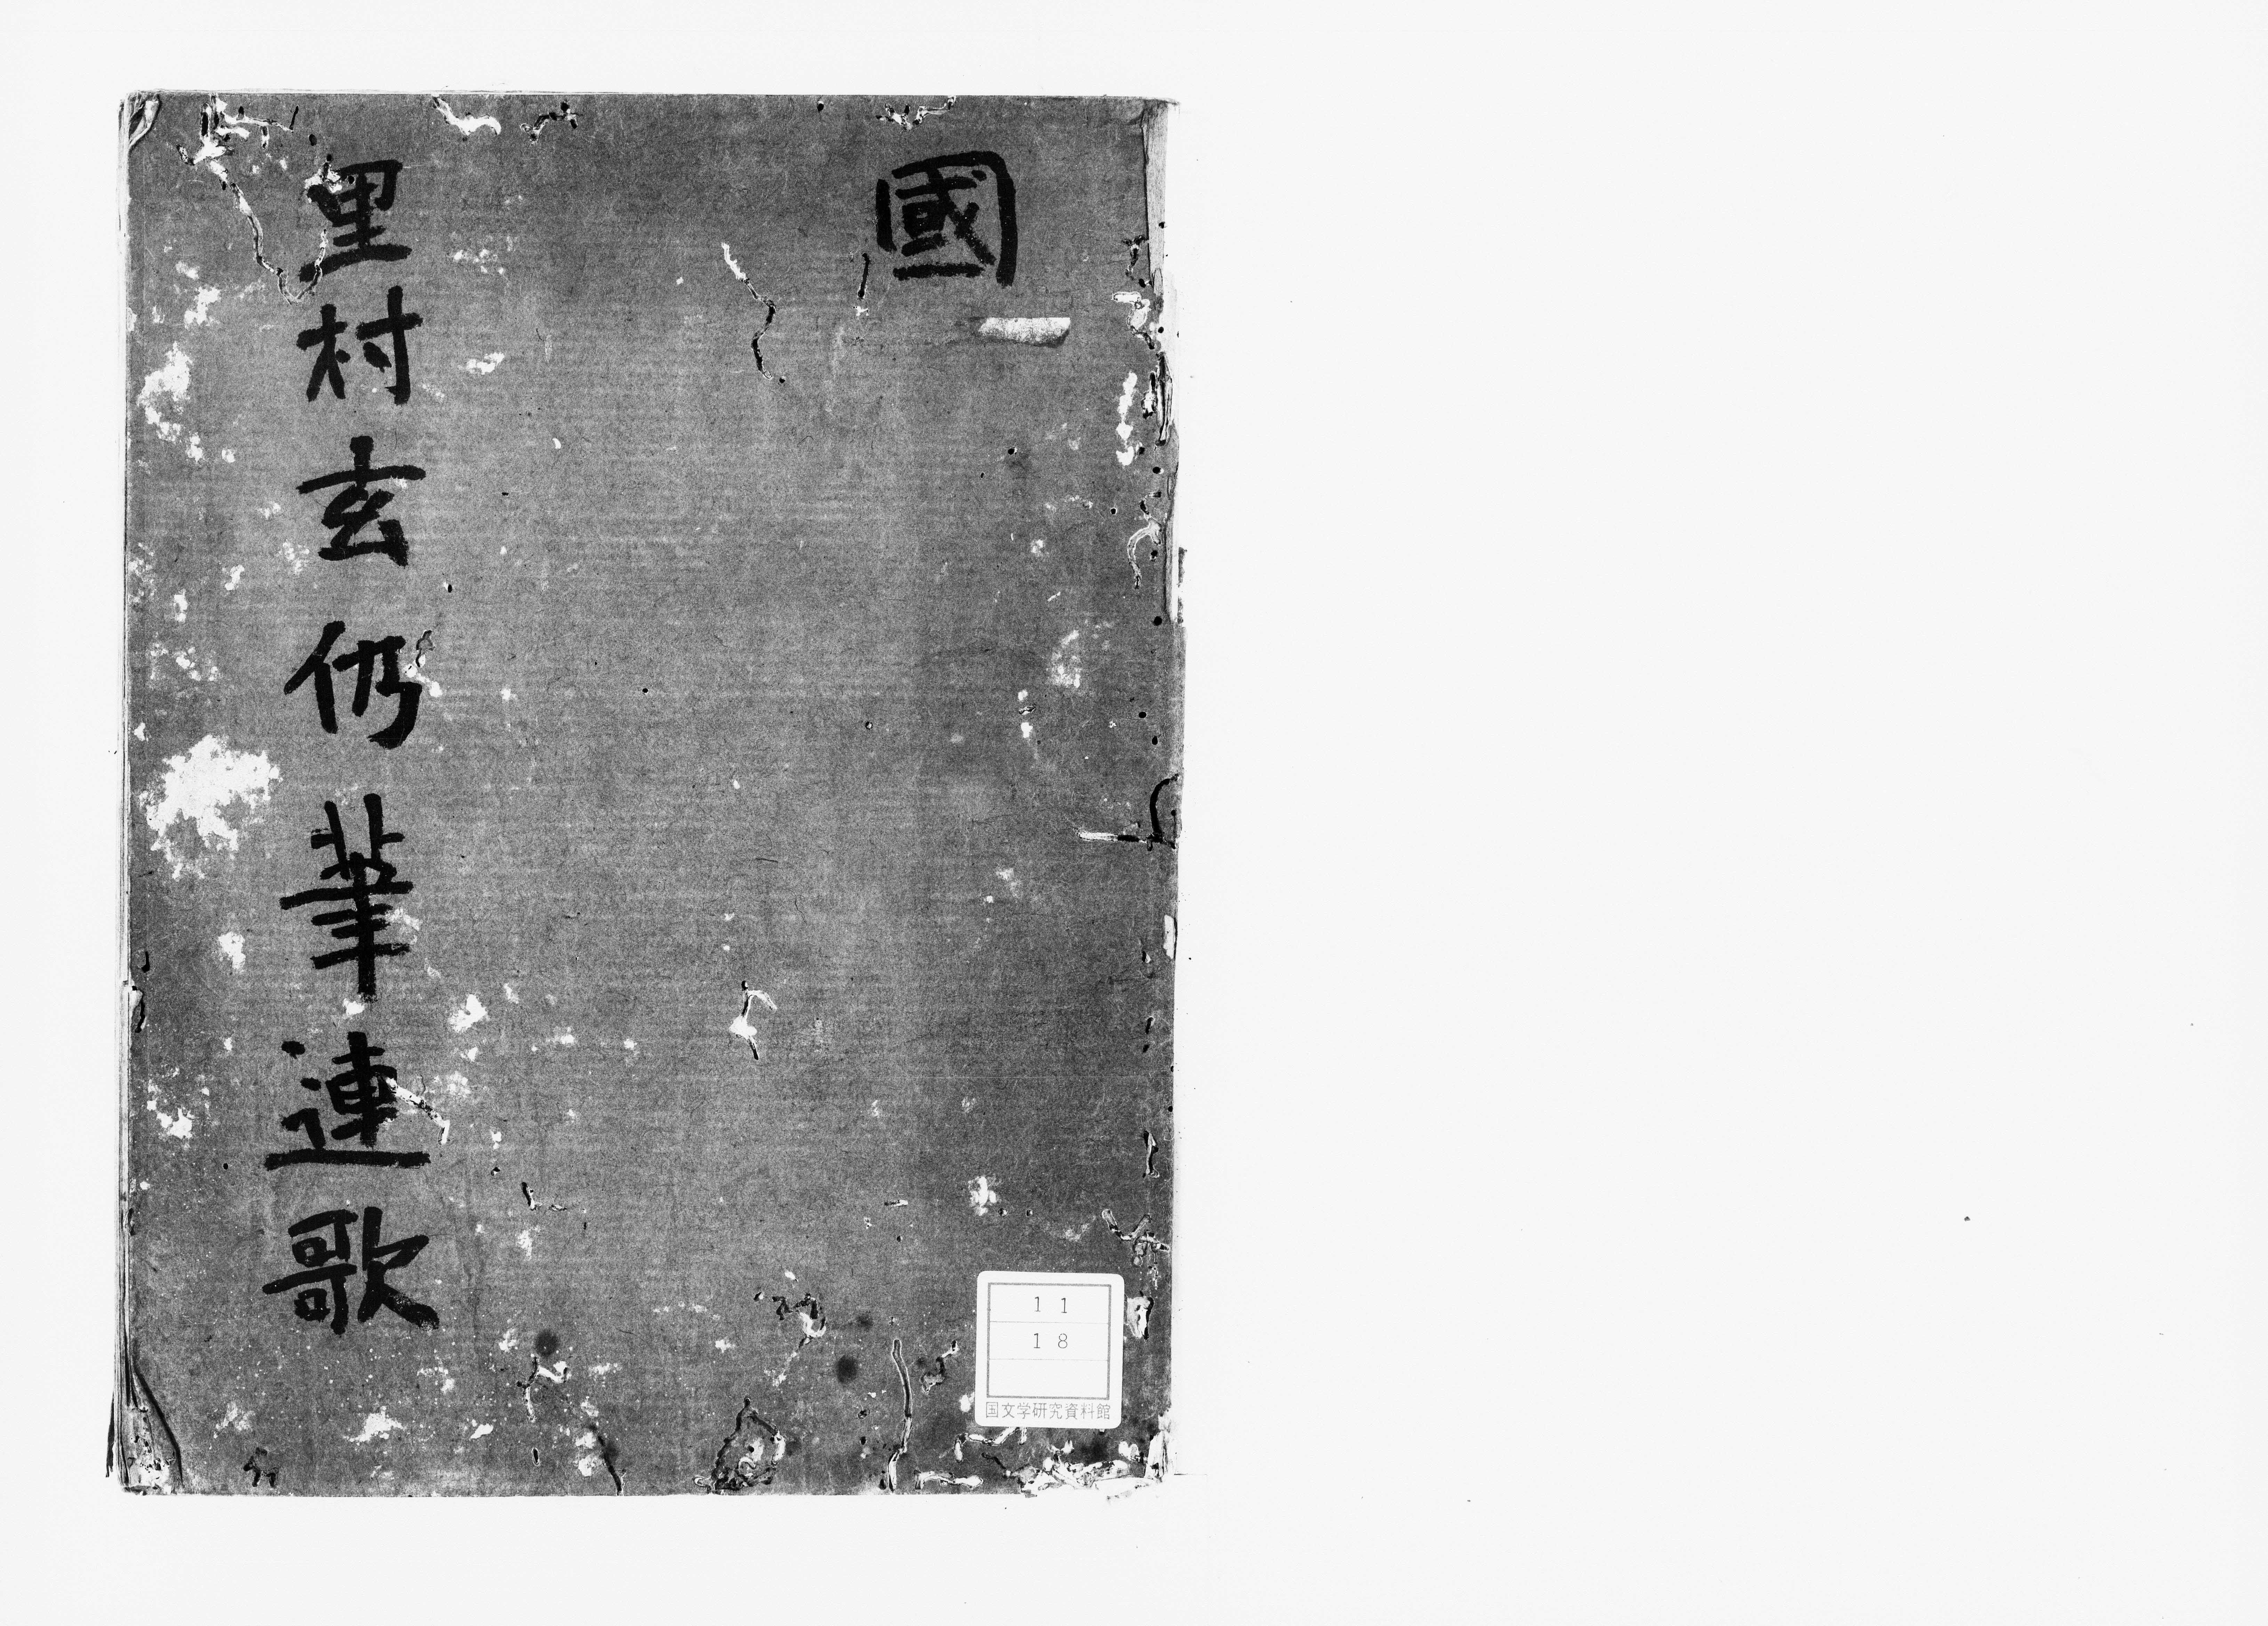 國
里村玄仍筆連歌
11
18
国文学研究資料館